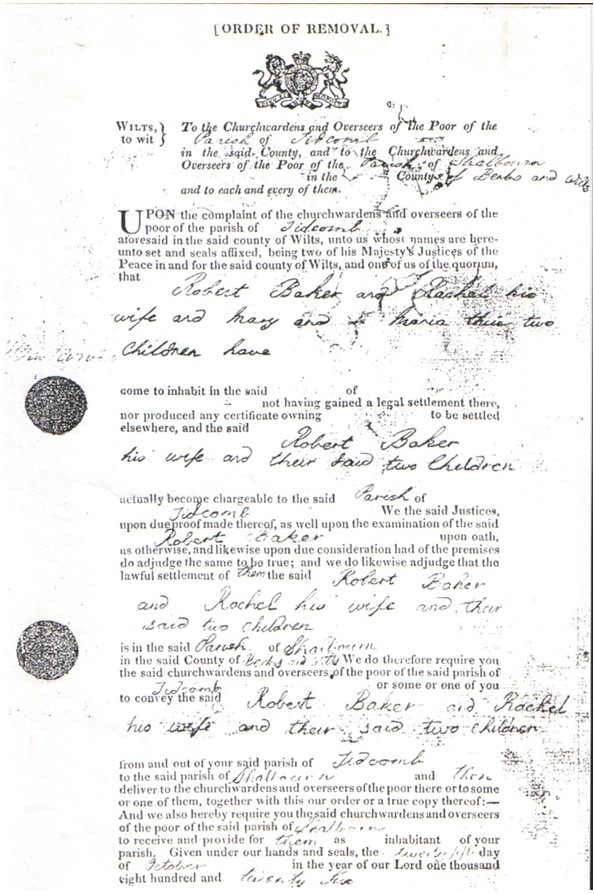 [ORDER OF REMOVAL.]
WILTS,} To the Churchwardens and Overseers of the Poor of the
to wit } Parish of Tidcomb
in the said County, and to the Churchwardens and
Overseers of the Poor of the Parish of Shalbourn
in the County of Berks and Wilts
and to each and every of them.
UPON the complaint of the churchwardens and overseers of the
poor of the parish of Tidcomb
aforesaid in the said county of Wilts, unto us whose names are here-
unto set and seals affixed, being two of his Majesty's Justices of the
Peace in and for the said county of Wilts, and one of us of the quorum,
that
Robert Baker and Rachel his
wife and Mary and Maria their two
Children have
come to inhabit in the said of
not having gained a legal settlement there,
nor produced any certificate owning to be settled
elsewhere, and the said
Robert Baker
his wife and their said two Children
actually become chargeable to the said Parish of
Tidcomb We the said Justices,
upon due proof made thereof, as well upon the examination of the said
Robert Baker upon oath,
as otherwise, and likewise upon due consideration had of the premises
do adjudge the same to be true; and we do likewise adjudge that the
lawful settlement of them the said Robert Baker
and Rachel his wife and their
said two children
is in the said Parish of Shalbourn
in the said County of Berks and Wilts We do therefore require you
the said churchwardens and overseers of the poor of the said parish of
Tidcomb or some or one of you
to convey the said Robert Baker and Rachel
his wife and their said two children
from and out of your said parish of Tidcomb
to the said parish of Shalbourn and them
deliver to the churchwardens and overseers of the poor there or to some
or one of them, together with this our order or a true copy thereof:—
And we also hereby require you the said churchwardens and overseers
of the poor of the said parish of Shalbourn
to receive and provide for them as inhabitant of your
parish. Given under our hands and seals, the day
of October in the year of our Lord one thousand
eight hundred and twenty